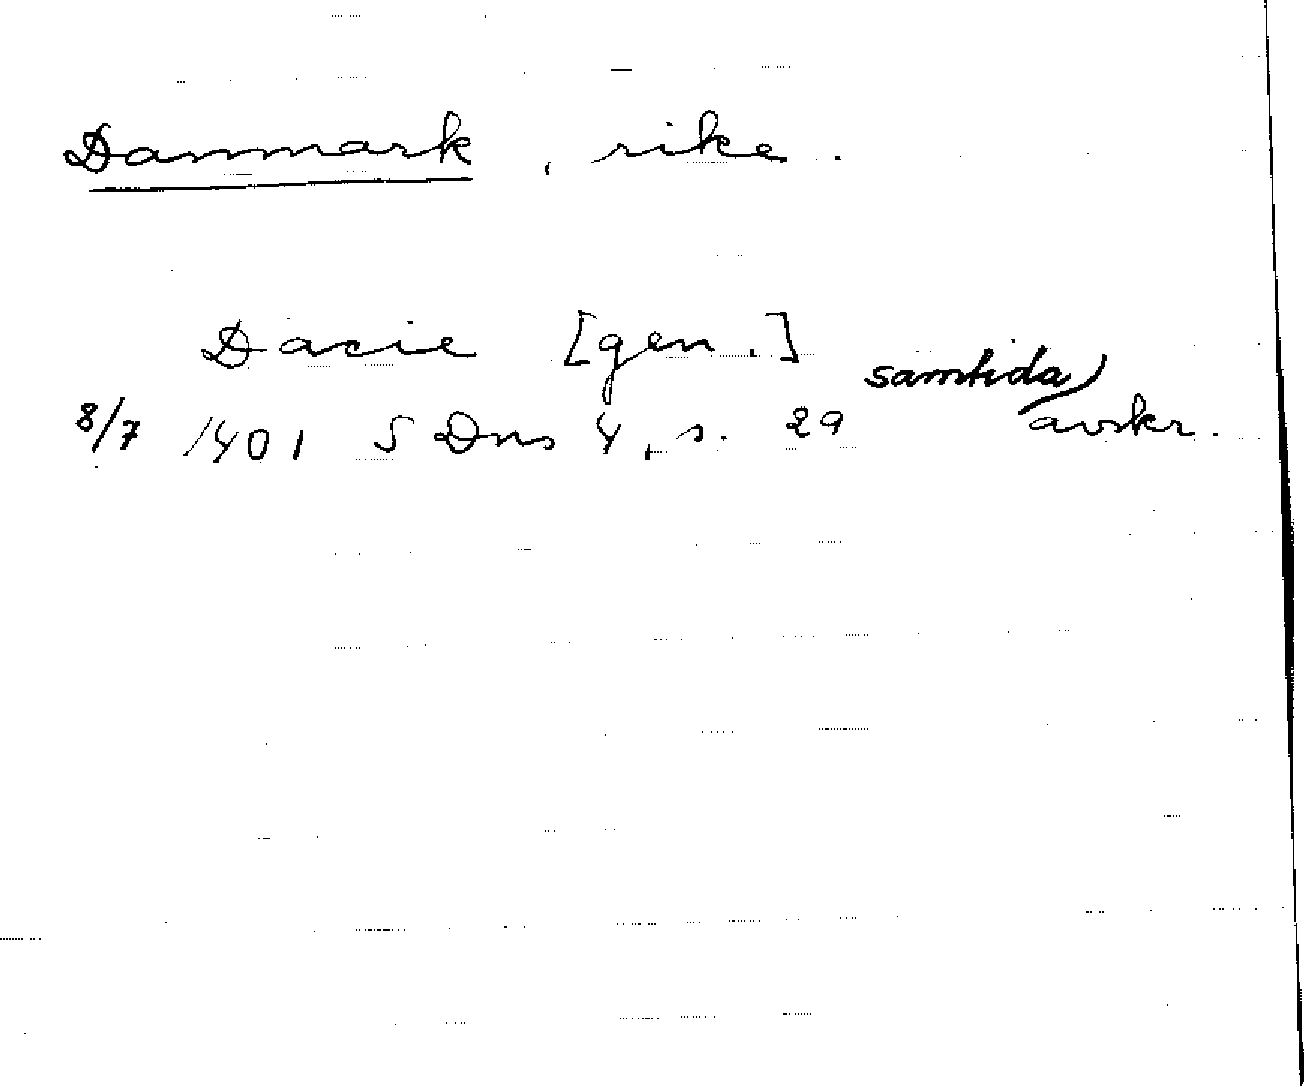 Danmark, rike.
Dacie [gen.]
8/7 1401 SDns 4, s. 29 samtida avskr.